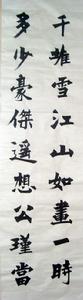 千堆雪江山如畫一時
多少豪傑遥想公瑾當